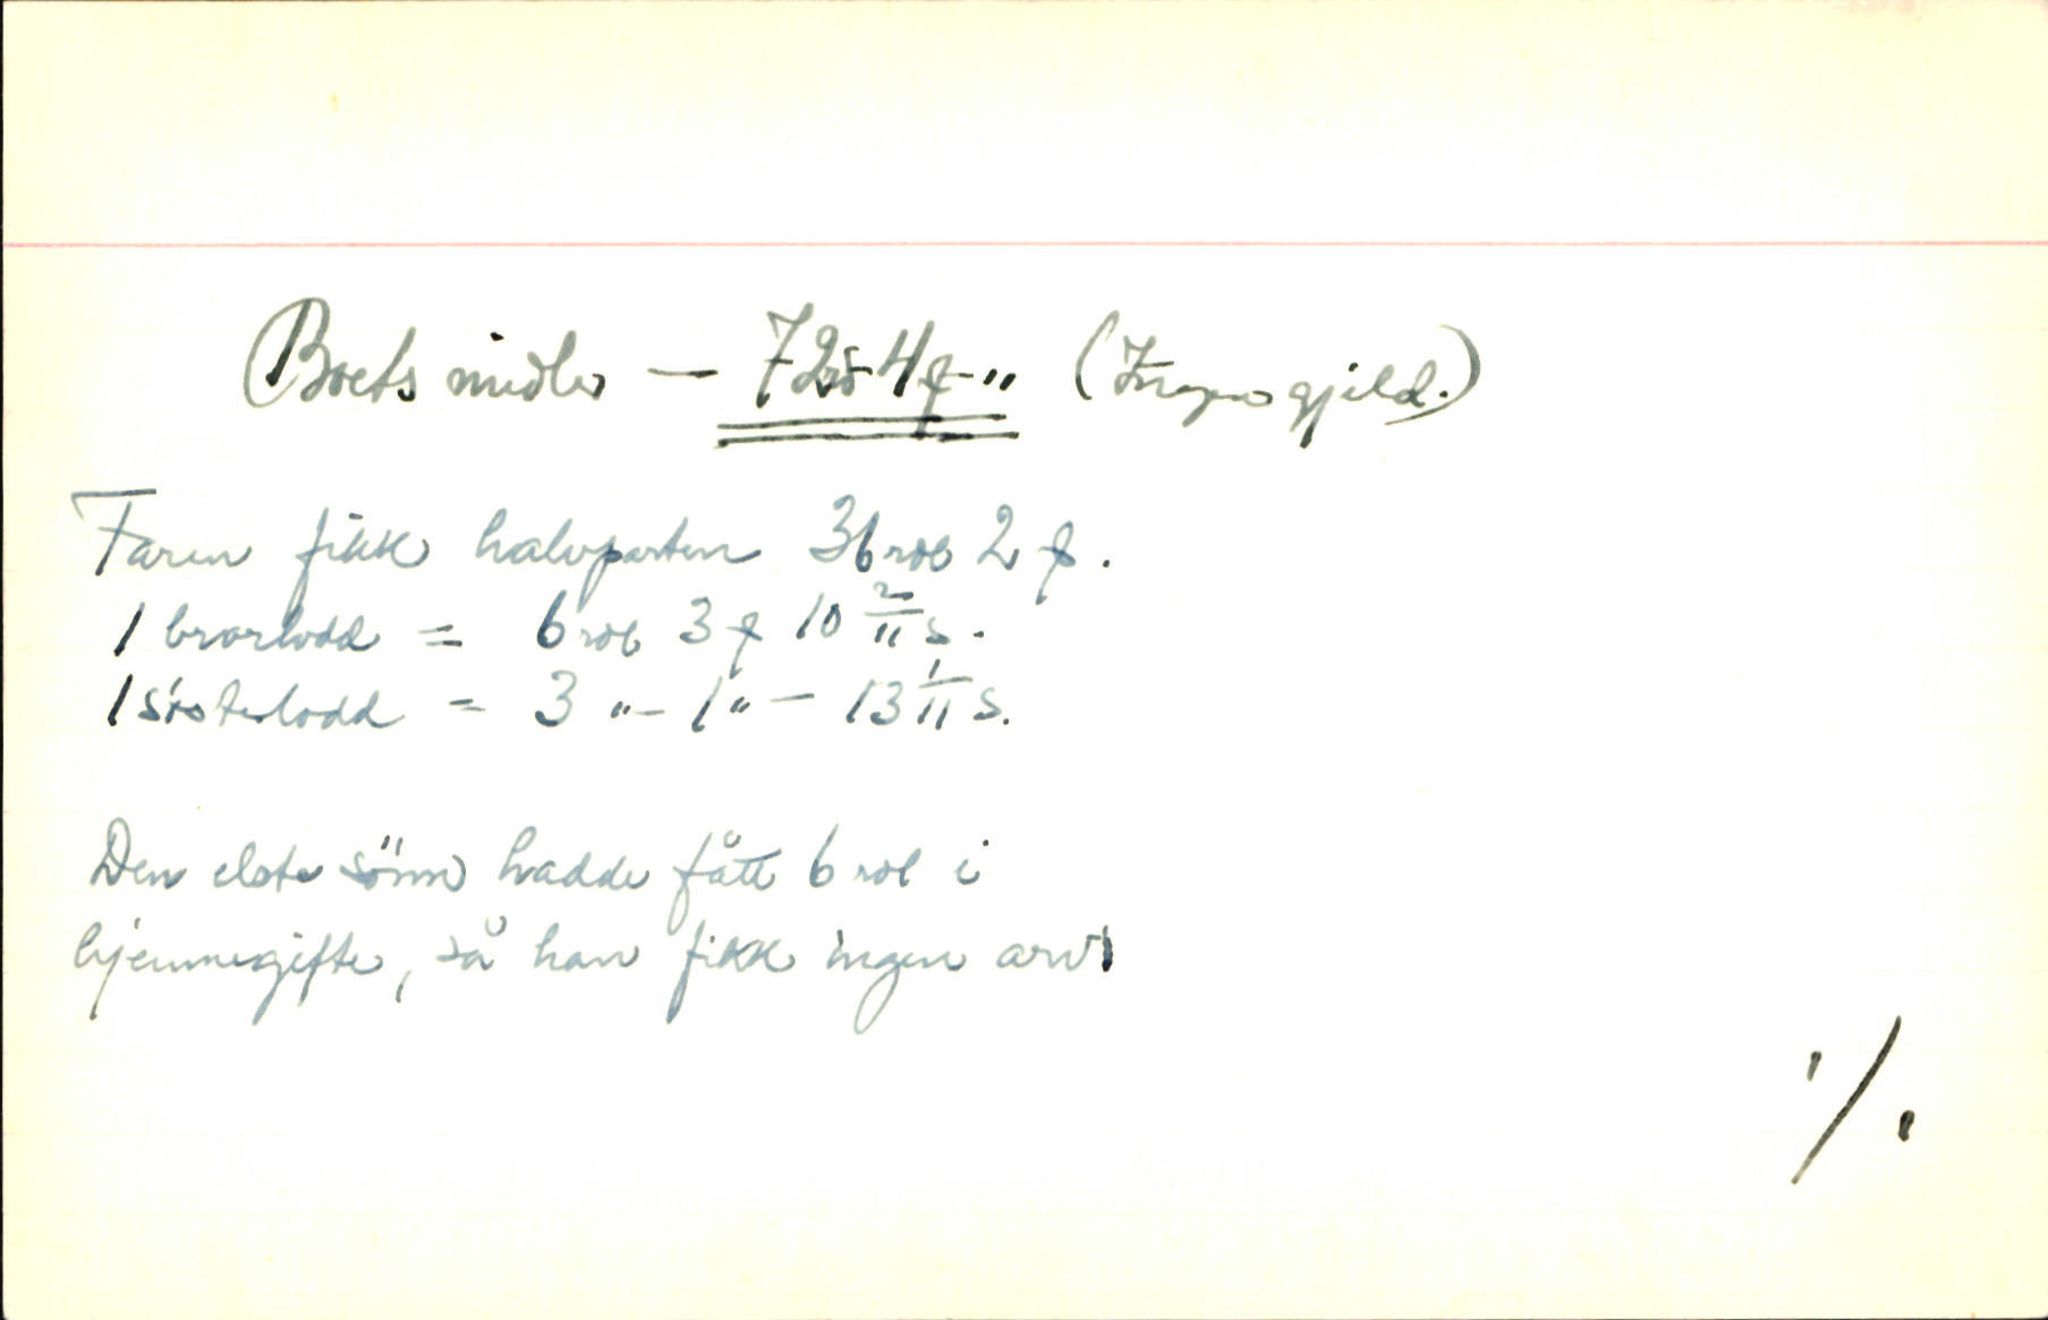 Boets midler — 72 rd 4 q - " (Ingen gjeld.)
Faren fikk halvparten 36 rdl 2 q.
1 brorlodd = 6 rdl 3 q 10 2/11 s.
1 sösterlodd = 3 "– 1 " – 13 1/11 s.
Den elste sönn hadde fått 6 rdl i
hjemmegifte, så han fikk ingen arv
1/.